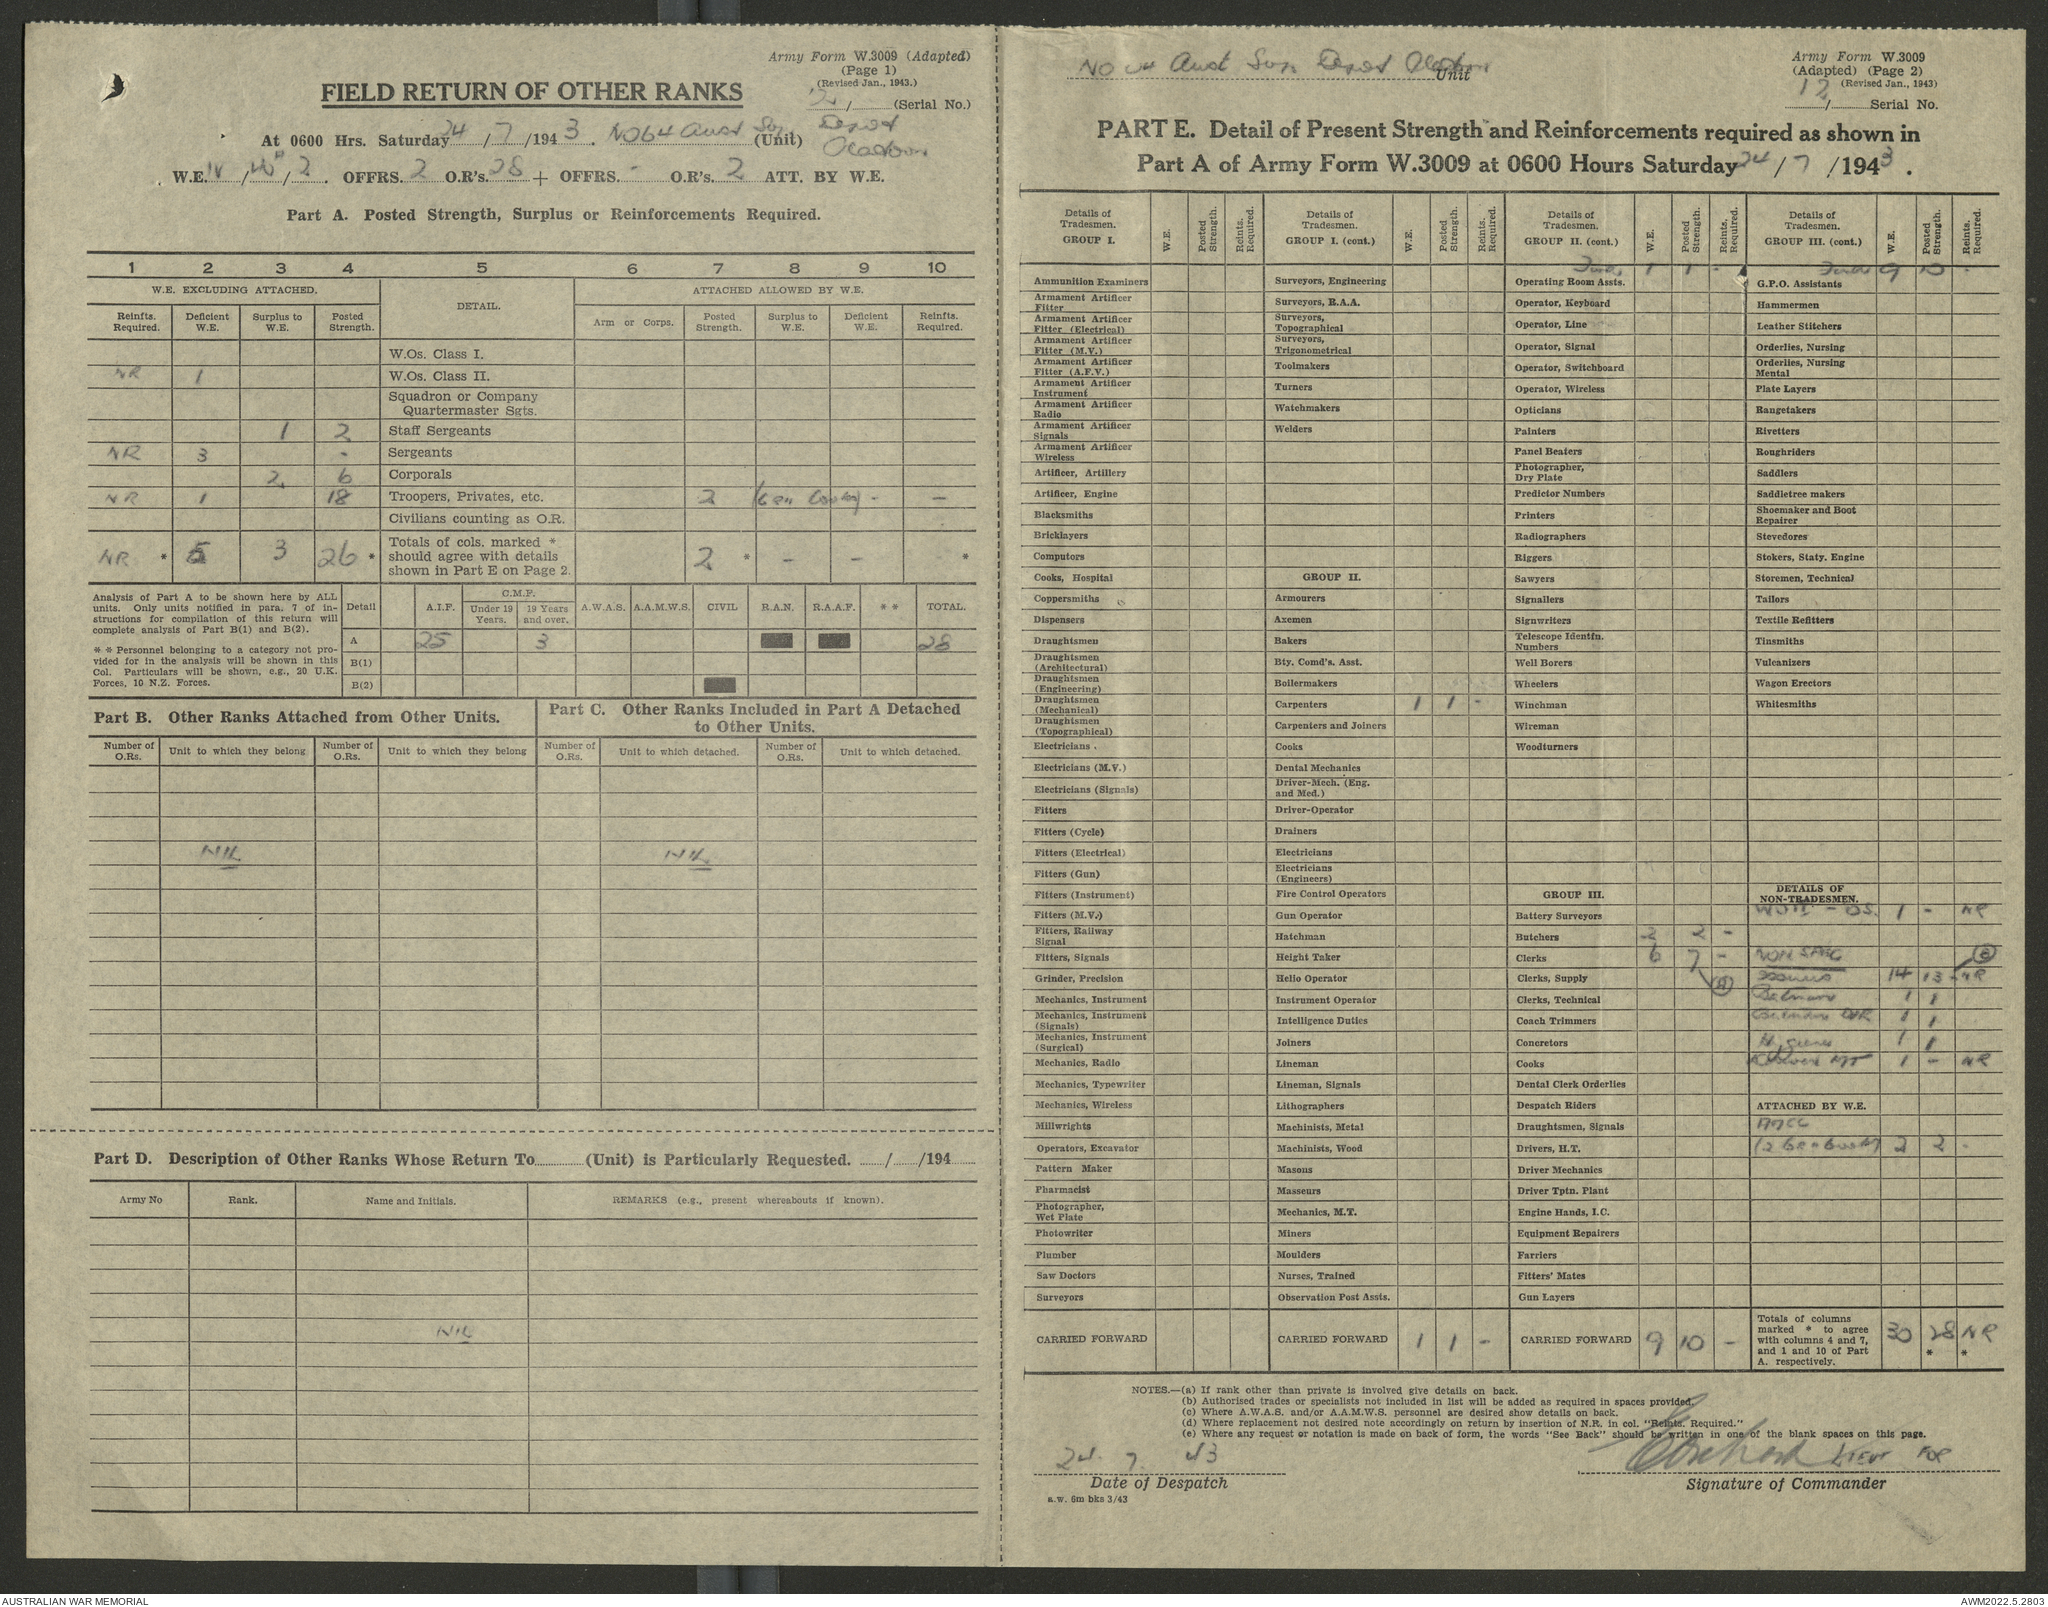 Army Form W.3009 (Adapted)
(Page 1)
(Revised Jan., 1943.)
FIELD RETURN OF OTHER RANKS
12/ (Serial No.)
At 0600 Hrs. Saturday 24/7/1943. No 64 Aust Sup Depot (Unit)
W.E. IV/ /2. OFFRS. 2 O.R's. 28 + OFFRS. - O.R's. 2 ATT. BY W.E.
Part A. Posted Strength, Surplus or Reinforcements Required.
1 2 3 4 5 6 7 8 9 10
W.E. EXCLUDING ATTACHED. DETAIL. ATTACHED ALLOWED BY W.E.
Reinfts. Required. Deficient W.E. Surplus to W.E. Posted Strength. Arm or Corps. Posted Strength. Surplus to W.E. Deficient W.E. Reinfts. Required.
W.Os. Class I.
NR 1 W.Os. Class II.
Squadron or Company Quartermaster Sgts.
1 2 Staff Sergeants
NR 3 - Sergeants
2 6 Corporals
NR 1 18 Troopers, Privates, etc. 2 - -
Civilians counting as O.R.
NR * 5 3 26 * Totals of cols. marked * should agree with details shown in Part E on Page 2. 2 * - - *
Analysis of Part A to be shown here by ALL units. Only units notified in para. 7 of instructions for compilation of this return will complete analysis of Part B(1) and B(2).
* * Personnel belonging to a category not provided for in the analysis will be shown in this Col. Particulars will be shown, e.g., 20 U.K. Forces, 10 N.Z. Forces.
Detail A.I.F. C.M.F. Under 19 Years. 19 Years and over. A.W.A.S. A.A.M.W.S. CIVIL R.A.N. R.A.A.F. * * TOTAL.
A 25 3 28
B(1)
B(2)
Part B. Other Ranks Attached from Other Units.
Part C. Other Ranks Included in Part A Detached to Other Units.
Number of O.Rs. Unit to which they belong Number of O.Rs. Unit to which they belong Number of O.Rs. Unit to which detached. Number of O.Rs. Unit to which detached.
NIL NIL
Part D. Description of Other Ranks Whose Return To (Unit) is Particularly Requested. / /194
Army No Rank. Name and Initials. REMARKS (e.g., present whereabouts if known).
NIL
No 64 Aust Sup Depot Unit
Army Form W.3009
(Adapted) (Page 2)
(Revised Jan., 1943)
12/ Serial No.
PART E. Detail of Present Strength and Reinforcements required as shown in
Part A of Army Form W.3009 at 0600 Hours Saturday 24/7/1943.
Details of Tradesmen. GROUP I. W.E. Posted Strength. Reints. Required.
Ammunition Examiners
Armament Artificer Fitter
Armament Artificer Fitter (Electrical)
Armament Artificer Fitter (M.V.)
Armament Artificer Fitter (A.F.V.)
Armament Artificer Instrument
Armament Artificer Radio
Armament Artificer Signals
Armament Artificer Wireless
Artificer, Artillery
Artificer, Engine
Blacksmiths
Bricklayers
Computors
Cooks, Hospital
Coppersmiths
Dispensers
Draughtsmen
Draughtsmen (Architectural)
Draughtsmen (Engineering)
Draughtsmen (Mechanical)
Draughtsmen (Topographical)
Electricians
Electricians (M.V.)
Electricians (Signals)
Fitters
Fitters (Cycle)
Fitters (Electrical)
Fitters (Gun)
Fitters (Instrument)
Fitters (M.V.)
Fitters, Railway Signal
Fitters, Signals
Grinder, Precision
Mechanics, Instrument
Mechanics, Instrument (Signals)
Mechanics, Instrument (Surgical)
Mechanics, Radio
Mechanics, Typewriter
Mechanics, Wireless
Millwrights
Operators, Excavator
Pattern Maker
Pharmacist
Photographer, Wet Plate
Photowriter
Plumber
Saw Doctors
Surveyors
CARRIED FORWARD
Details of Tradesmen. GROUP I. (cont.) W.E. Posted Strength. Reints. Required.
Surveyors, Engineering
Surveyors, R.A.A.
Surveyors, Topographical
Surveyors, Trigonometrical
Toolmakers
Turners
Watchmakers
Welders
GROUP II.
Armourers
Axemen
Bakers
Bty. Comd's. Asst.
Boilermakers
Carpenters 1 1 -
Carpenters and Joiners
Cooks
Dental Mechanics
Driver-Mech. (Eng. and Med.)
Driver-Operator
Drainers
Electricians
Electricians (Engineers)
Fire Control Operators
Gun Operator
Hatchman
Height Taker
Helio Operator
Instrument Operator
Intelligence Duties
Joiners
Lineman
Lineman, Signals
Lithographers
Machinists, Metal
Machinists, Wood
Masons
Masseurs
Mechanics, M.T.
Miners
Moulders
Nurses, Trained
Observation Post Assts.
CARRIED FORWARD 1 1 -
Details of Tradesmen. GROUP II. (cont.) W.E. Posted Strength. Reints. Required.
Fwd. 1 1 -
Operating Room Assts.
Operator, Keyboard
Operator, Line
Operator, Signal
Operator, Switchboard
Operator, Wireless
Opticians
Painters
Panel Beaters
Photographer, Dry Plate
Predictor Numbers
Printers
Radiographers
Riggers
Sawyers
Signallers
Signwriters
Telescope Identfn. Numbers
Well Borers
Wheelers
Winchman
Wireman
Woodturners
GROUP III.
Battery Surveyors
Butchers 2 2 -
Clerks 6 7 -
Clerks, Supply
Clerks, Technical
Coach Trimmers
Concretors
Cooks
Dental Clerk Orderlies
Despatch Riders
Draughtsmen, Signals
Drivers, H.T.
Driver Mechanics
Driver Tptn. Plant
Engine Hands, I.C.
Equipment Repairers
Farriers
Fitters' Mates
Gun Layers
CARRIED FORWARD 9 10 -
Details of Tradesmen. GROUP III. (cont.) W.E. Posted Strength. Reints. Required.
Fwd 9 10 -
G.P.O. Assistants
Hammermen
Leather Stitchers
Orderlies, Nursing
Orderlies, Nursing Mental
Plate Layers
Rangetakers
Rivetters
Roughriders
Saddlers
Saddletree makers
Shoemaker and Boot Repairer
Stevedores
Stokers, Staty. Engine
Storemen, Technical
Tailors
Textile Refitters
Tinsmiths
Vulcanizers
Wagon Erectors
Whitesmiths
DETAILS OF NON-TRADESMEN.
WOII - 1 - NR
NON SPEC
Issuers 14 13 - NR
Batmen 1 1
Batman DVR 1 1
Hygiene 1 1
Drivers MT 1 - NR
ATTACHED BY W.E.
AACC
2 2 -
Totals of columns marked * to agree with columns 4 and 7, and 1 and 10 of Part A. respectively. 30 28 * NR *
NOTES.—(a) If rank other than private is involved give details on back.
(b) Authorised trades or specialists not included in list will be added as required in spaces provided.
(c) Where A.W.A.S. and/or A.A.M.W.S. personnel are desired show details on back.
(d) Where replacement not desired note accordingly on return by insertion of N.R. in col. "Reints. Required."
(e) Where any request or notation is made on back of form, the words "See Back" should be written in one of the blank spaces on this page.
24. 7. 43
Date of Despatch
LIEUT FOR
Signature of Commander
a.w. 6m bks 3/43
AUSTRALIAN WAR MEMORIAL
AWM2022.5.2803